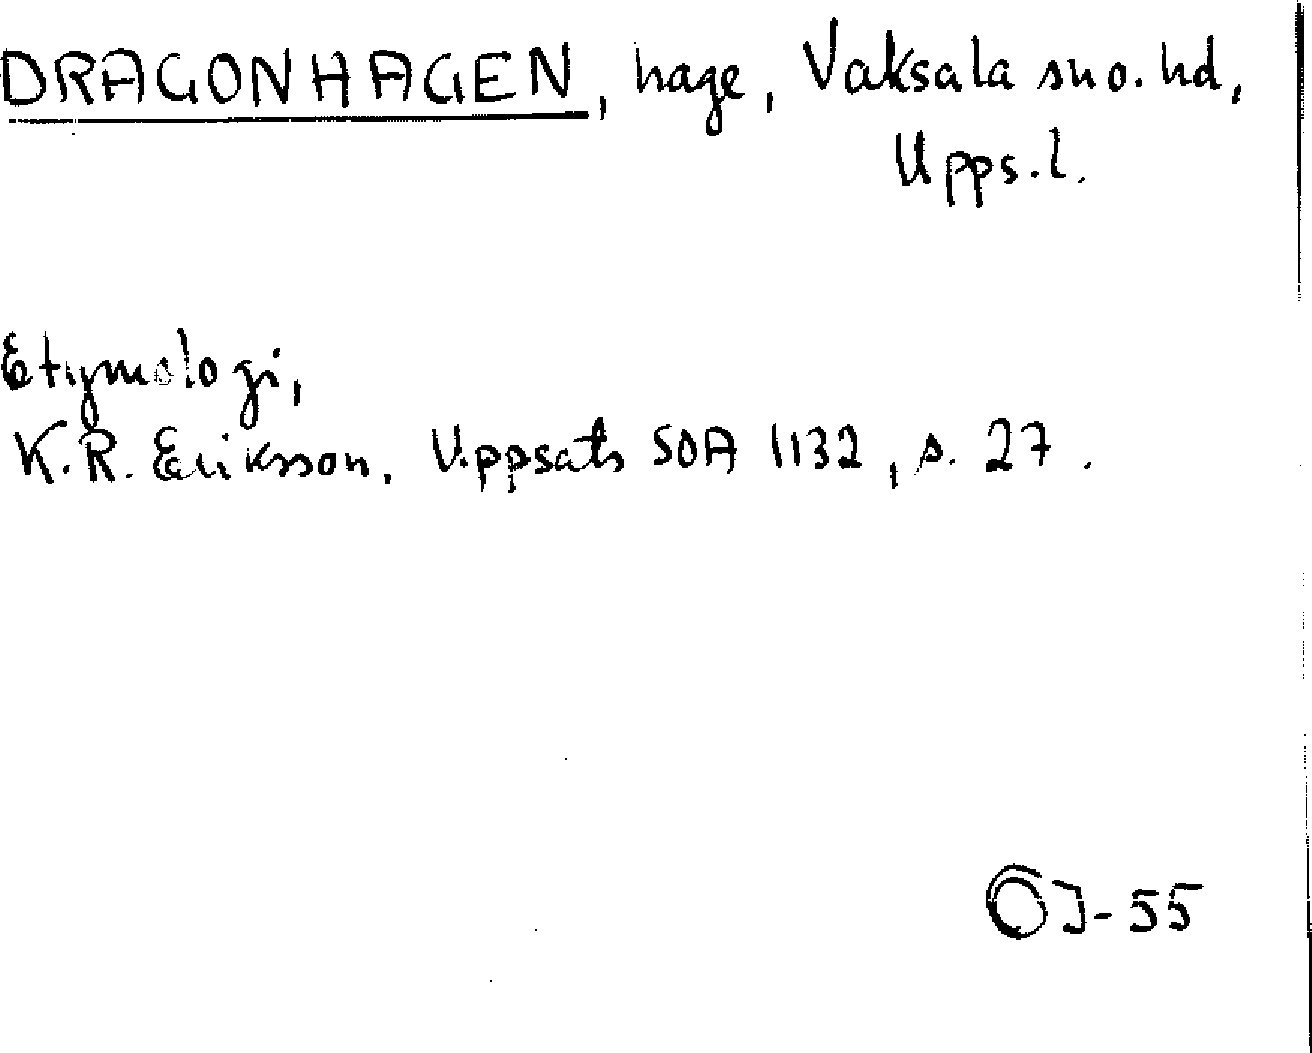 DRAGONHAGEN, hage, Vaksala sn o. hd,
Upps. l.
Etymologi,
K.R. Eriksson, Uppsats SOA 1132, s. 27.
OJ-55